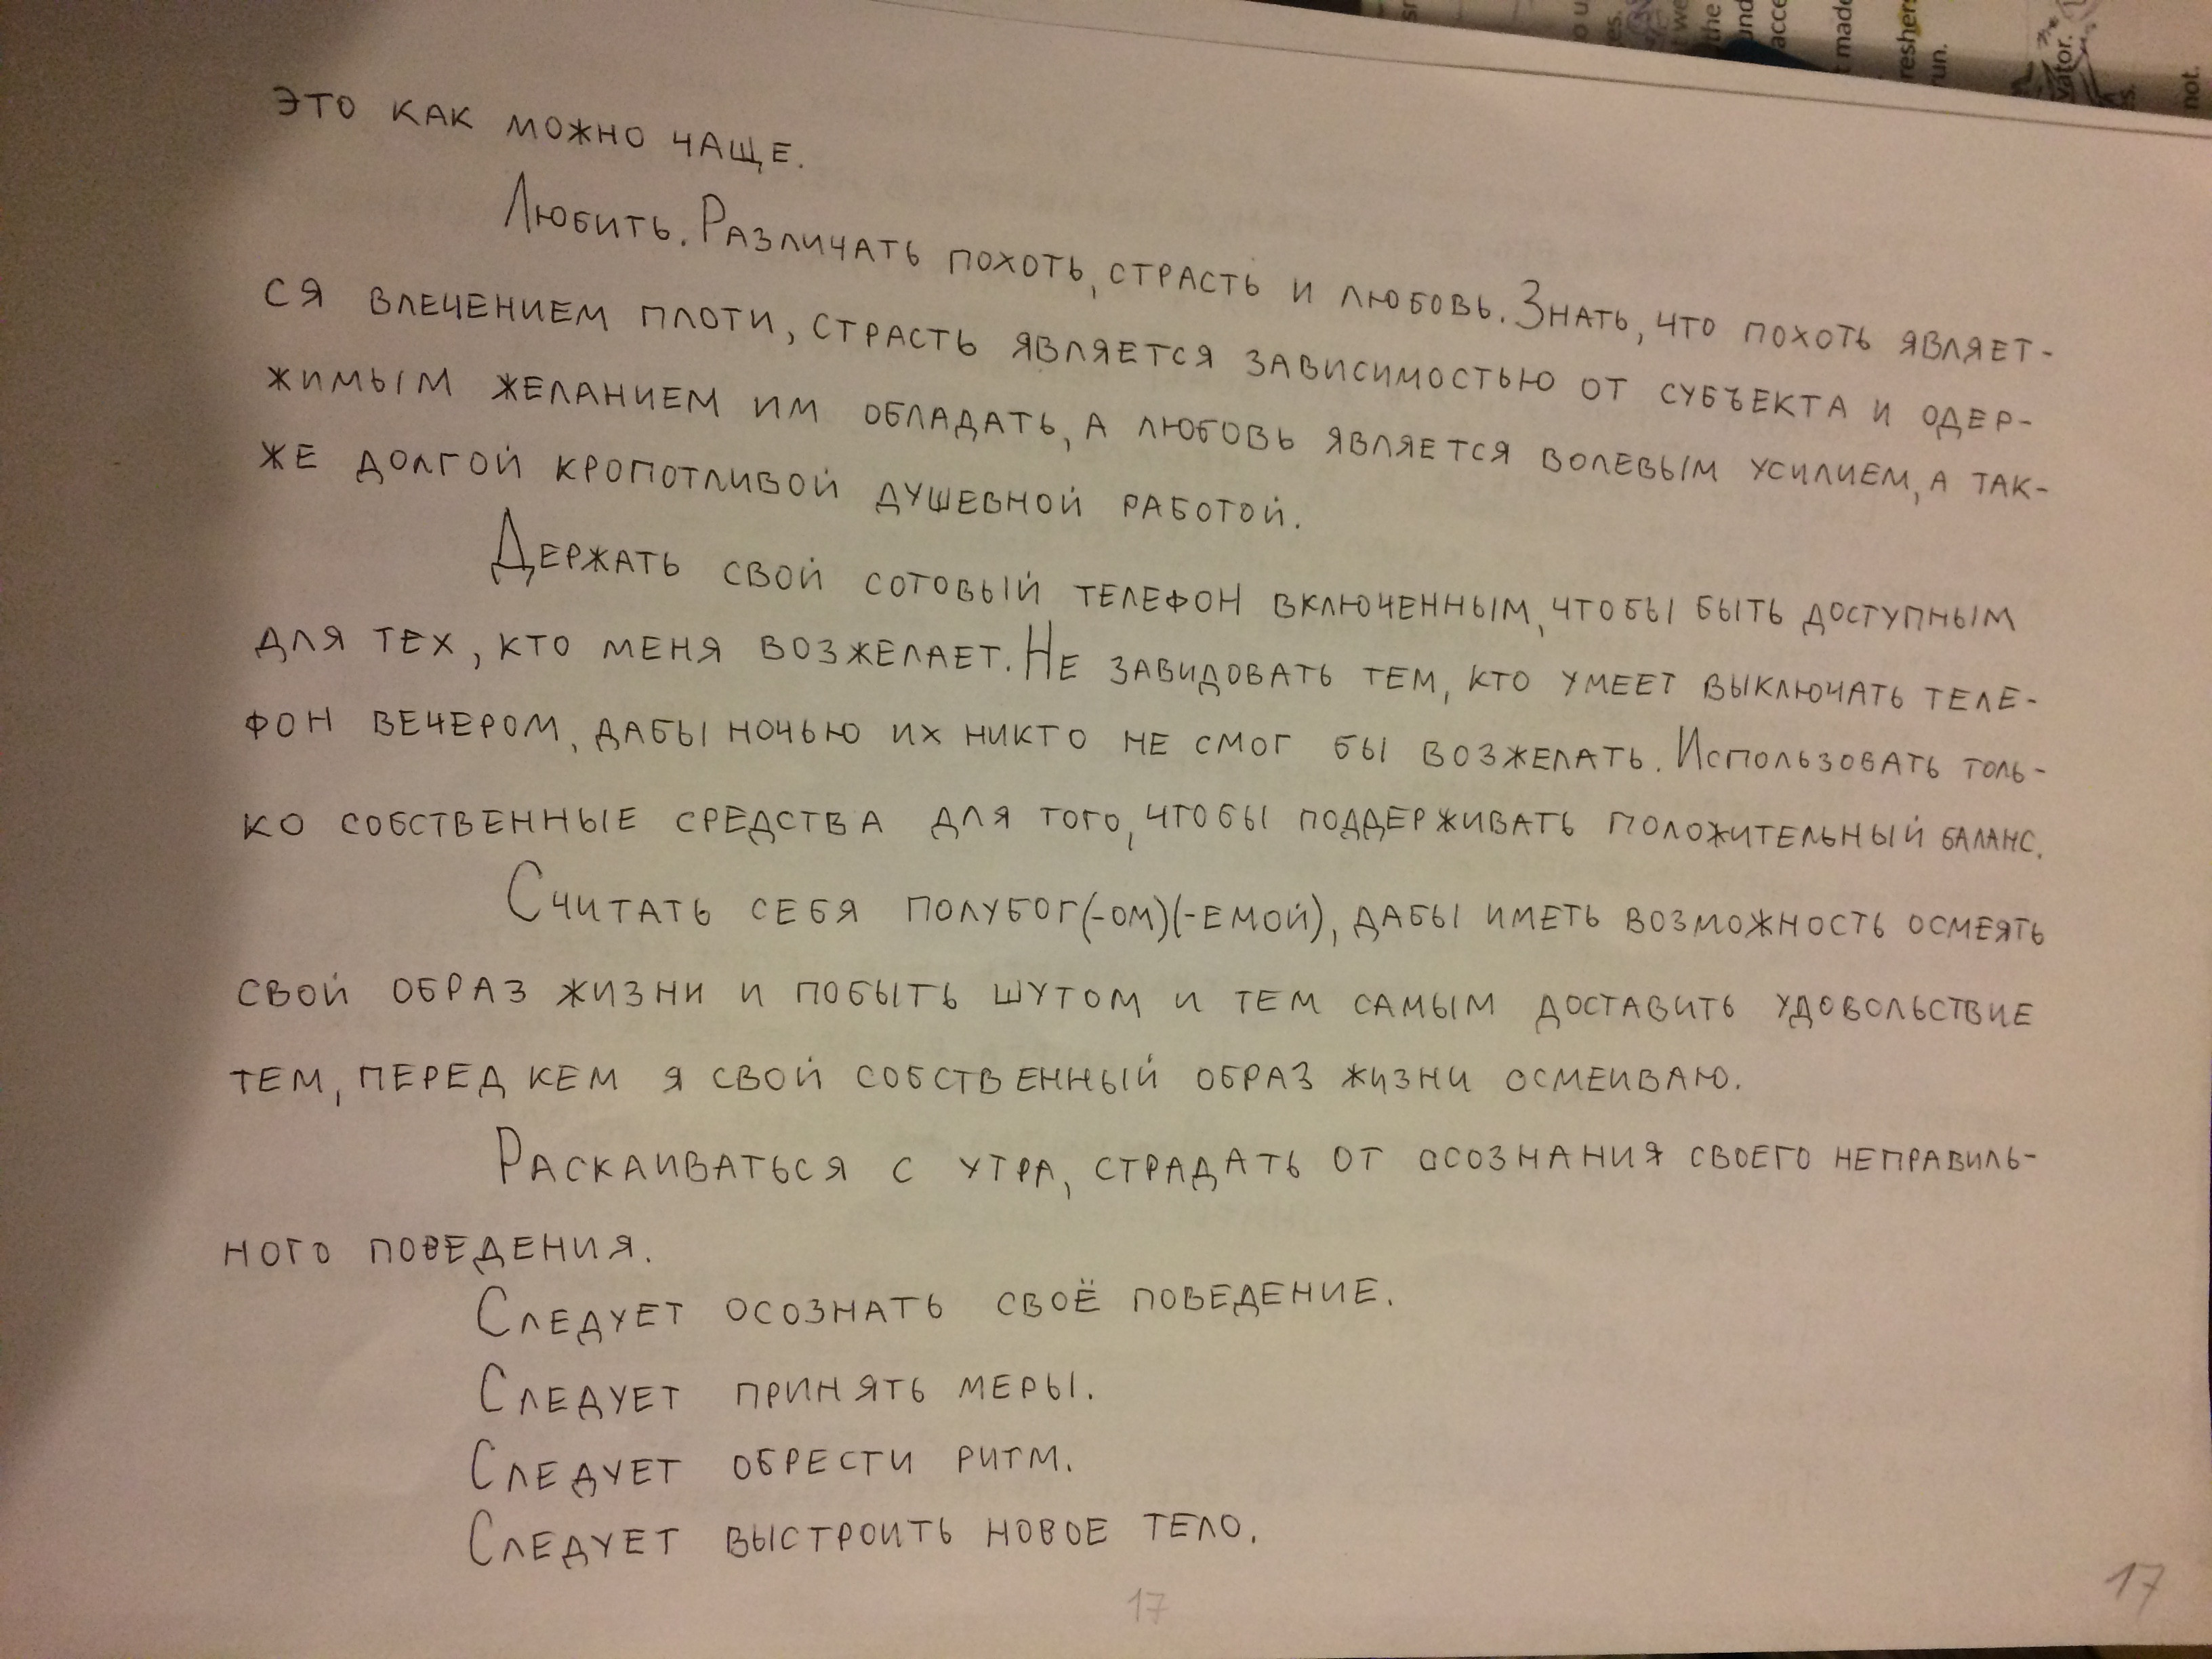 ЭТО КАК МОЖНО ЧАЩЕ.
ЛЮБИТЬ. РАЗЛИЧАТЬ ПОХОТЬ, СТРАСТЬ И ЛЮБОВЬ. ЗНАТЬ, ЧТО ПОХОТЬ ЯВЛЯЕТ-
СЯ ВЛЕЧЕНИЕМ ПЛОТИ, СТРАСТЬ ЯВЛЯЕТСЯ ЗАВИСИМОСТЬЮ ОТ СУБЪЕКТА И ОДЕР-
ЖИМЫМ ЖЕЛАНИЕМ ИМ ОБЛАДАТЬ, А ЛЮБОВЬ ЯВЛЯЕТСЯ ВОЛЕВЫМ УСИЛИЕМ, А ТАК-
ЖЕ ДОЛГОЙ КРОПОТЛИВОЙ ДУШЕВНОЙ РАБОТОЙ.
ДЕРЖАТЬ СВОЙ СОТОВЫЙ ТЕЛЕФОН ВКЛЮЧЕННЫМ, ЧТОБЫ БЫТЬ ДОСТУПНЫМ
ДЛЯ ТЕХ, КТО МЕНЯ ВОЗЖЕЛАЕТ. НЕ ЗАВИДОВАТЬ ТЕМ, КТО УМЕЕТ ВЫКЛЮЧАТЬ ТЕЛЕ-
ФОН ВЕЧЕРОМ, ДАБЫ НОЧЬЮ ИХ НИКТО НЕ СМОГ БЫ ВОЗЖЕЛАТЬ. ИСПОЛЬЗОВАТЬ ТОЛЬ-
КО СОБСТВЕННЫЕ СРЕДСТВА ДЛЯ ТОГО, ЧТОБЫ ПОДДЕРЖИВАТЬ ПОЛОЖИТЕЛЬНЫЙ БАЛАНС.
СЧИТАТЬ СЕБЯ ПОЛУБОГ(-ОМ)(-ЕМОЙ), ДАБЫ ИМЕТЬ ВОЗМОЖНОСТЬ ОСМЕЯТЬ
СВОЙ ОБРАЗ ЖИЗНИ И ПОБЫТЬ ШУТОМ И ТЕМ САМЫМ ДОСТАВИТЬ УДОВОЛЬСТВИЕ
ТЕМ, ПЕРЕД КЕМ Я СВОЙ СОБСТВЕННЫЙ ОБРАЗ ЖИЗНИ ОСМЕИВАЮ.
РАСКАИВАТЬСЯ С УТРА, СТРАДАТЬ ОТ ОСОЗНАНИЯ СВОЕГО НЕПРАВИЛЬ-
НОГО ПОВЕДЕНИЯ.
СЛЕДУЕТ ОСОЗНАТЬ СВОЁ ПОВЕДЕНИЕ.
СЛЕДУЕТ ПРИНЯТЬ МЕРЫ.
СЛЕДУЕТ ОБРЕСТИ РИТМ.
СЛЕДУЕТ ВЫСТРОИТЬ НОВОЕ ТЕЛО.
17
17
the
made
run.
not.